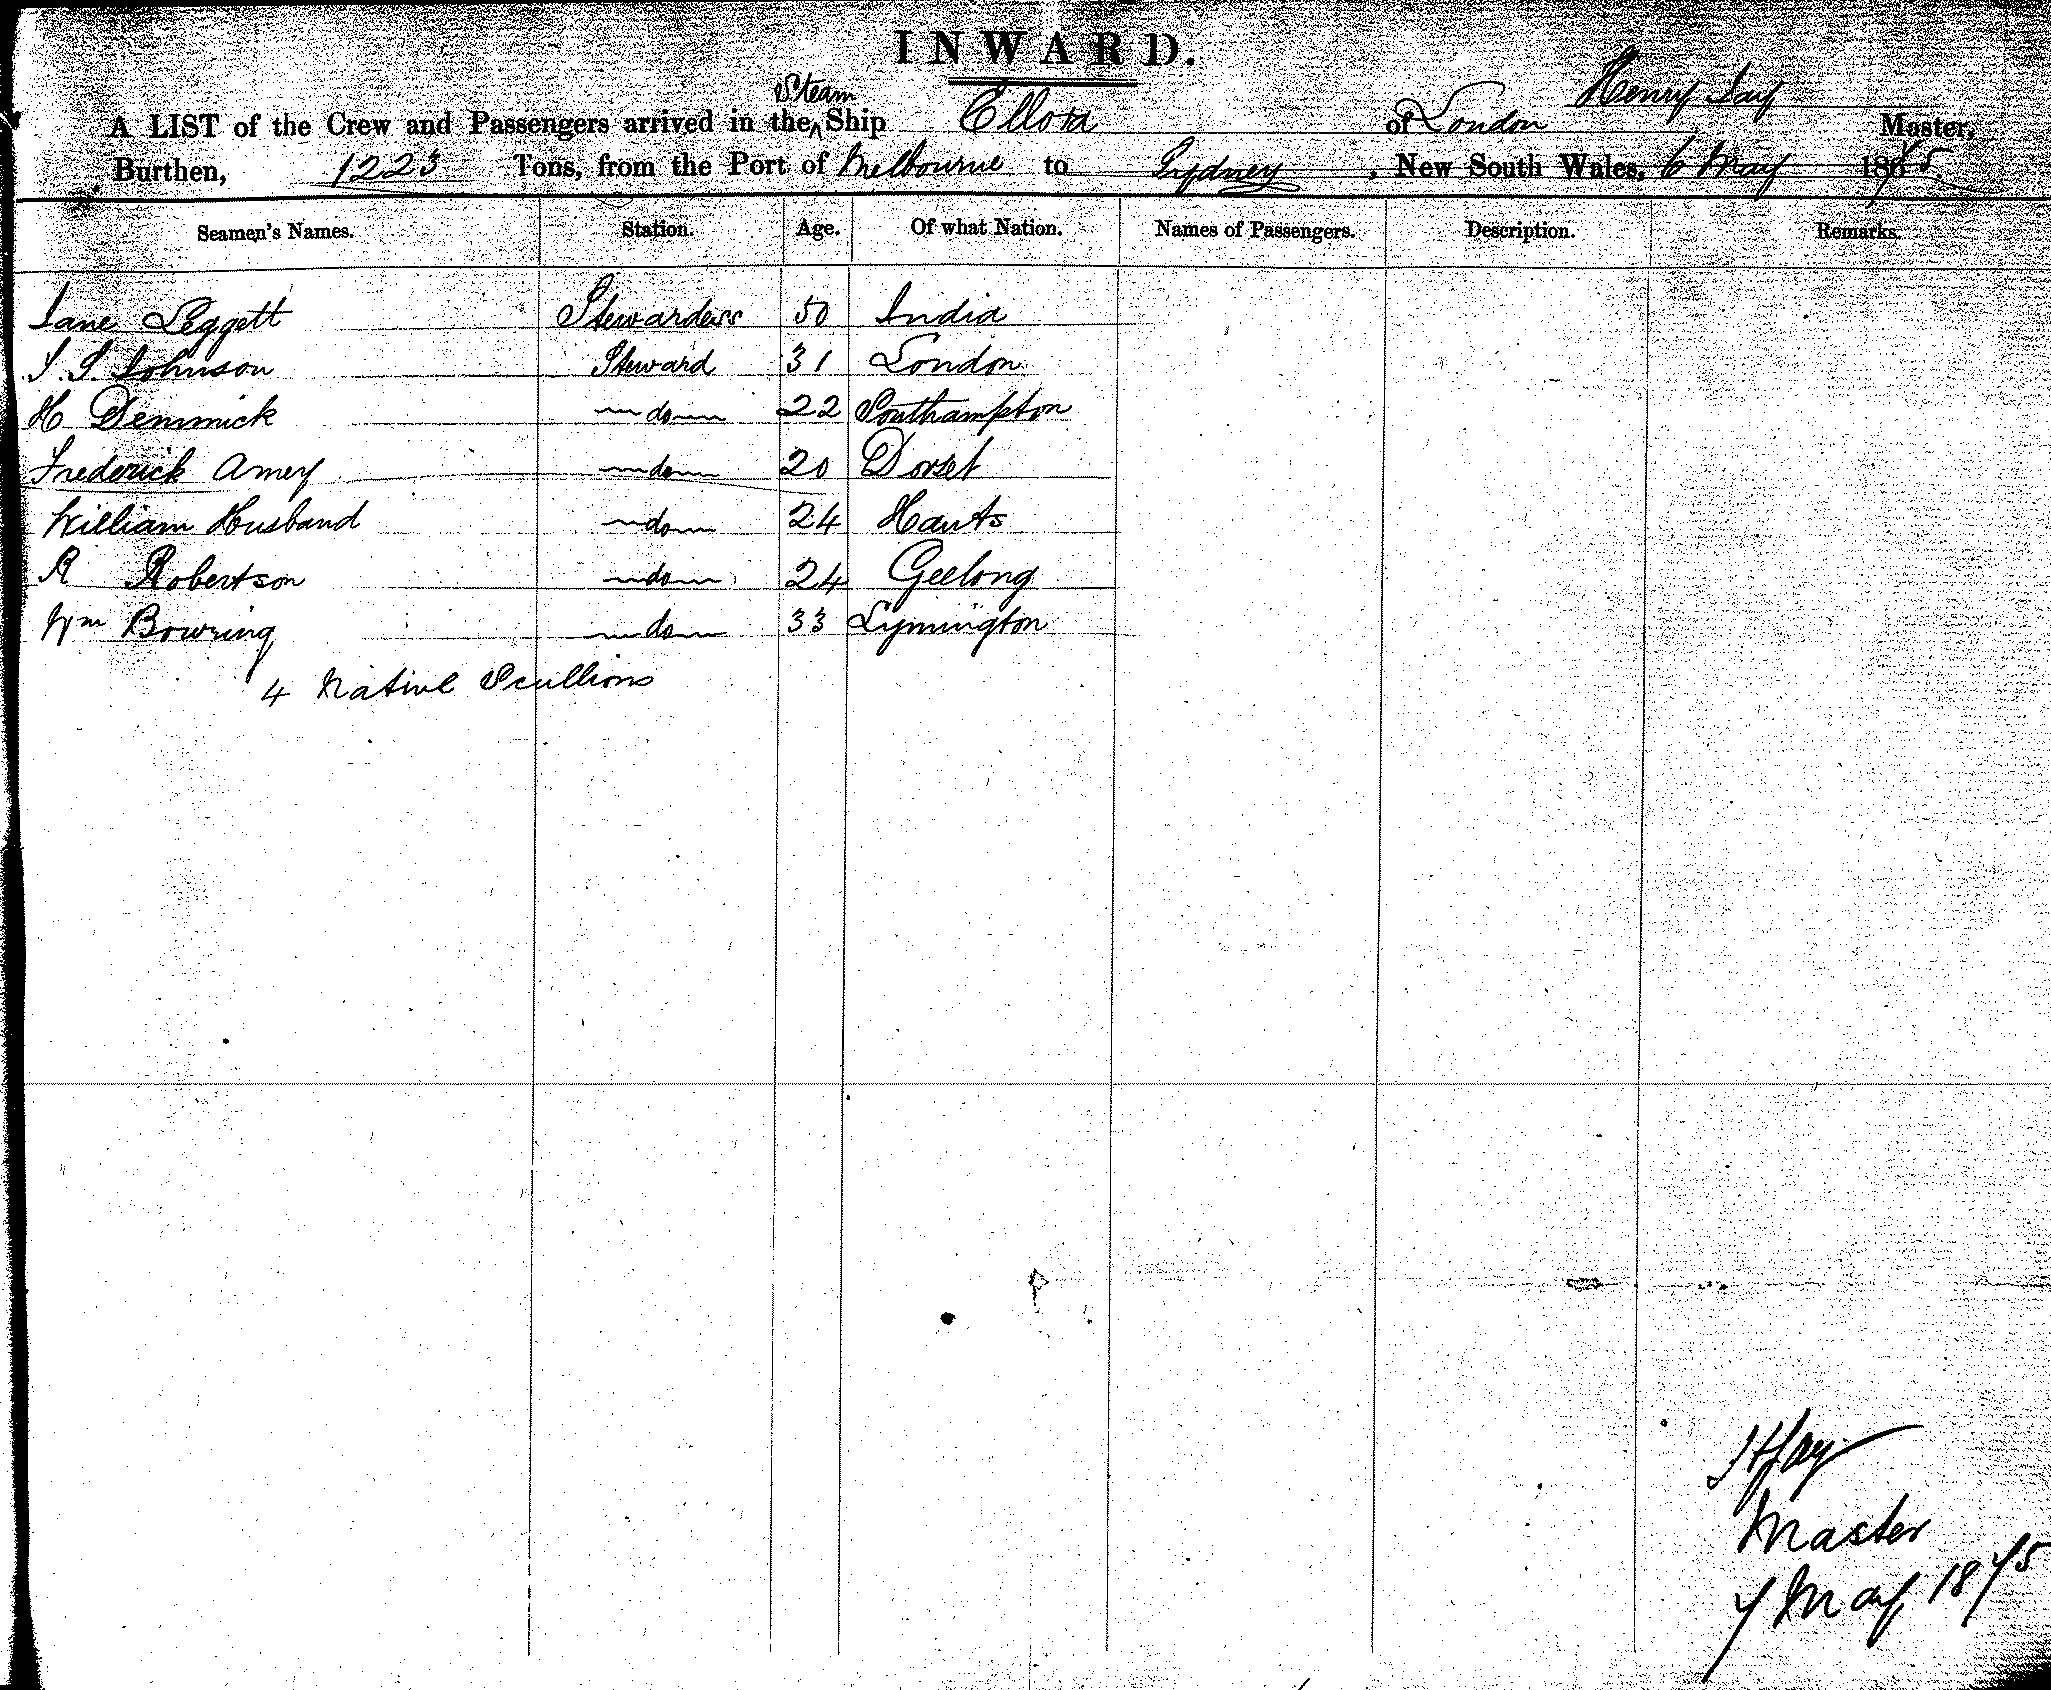 INWARD.
Steam
Henry Jay
A LIST of the Crew and Passengers arrived in the ^ Ship Ellora of London Master,
Burthen, 1223 Tons, from the Port of Melbourne to Sydney, New South Wales, 6 May 1875
Seamen's Names. Station. Age. Of what Nation. Names of Passengers. Description. Remarks.
Jane Leggett Stewardess 50 India
J. S. Johnson Steward 31 London
H Demmick do 22 Southampton
Frederick Amey do 20 Dorset
William Husband do 24 Hants
R Robertson do 24 Geelong
Wm Bowring do 33 Lymington
4 Native Scullions
H Jay
Master
7 May 1875